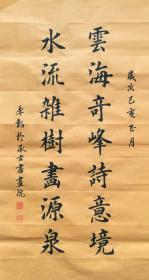 歲次己亥正月
雲海奇峰詩意境
水流雜樹畫源泉
於承古書畫院